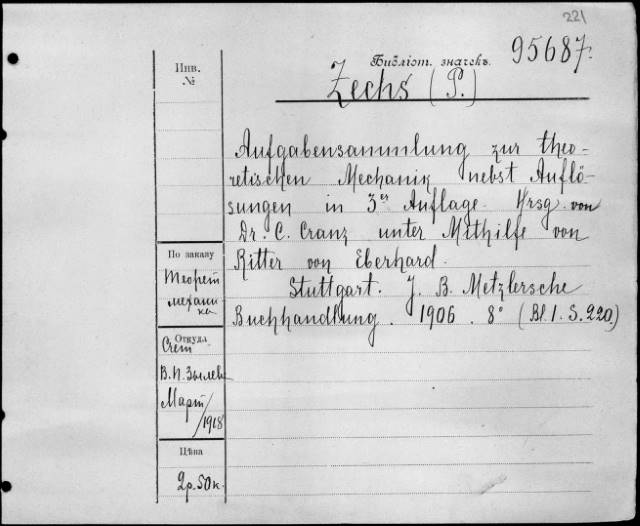 221
Инв.
№
Библіот. значекъ.
95687.
Zechs (P.)
Aufgabensammlung zur theo-
retischen Mechanik nebst Auflö-
sungen in 3er Auflage. Hrsg. von
Dr. C. Cranz unter Mithilfe von
Ritter von Eberhard.
Stuttgart. J. B. Metzlersche
Buchhandlung. 1906. 8° (Bl. 1. S. 220.)
По заказу
механи
ка
Откуда
Счет
Март
/1918
Цѣна
2р. 50к.